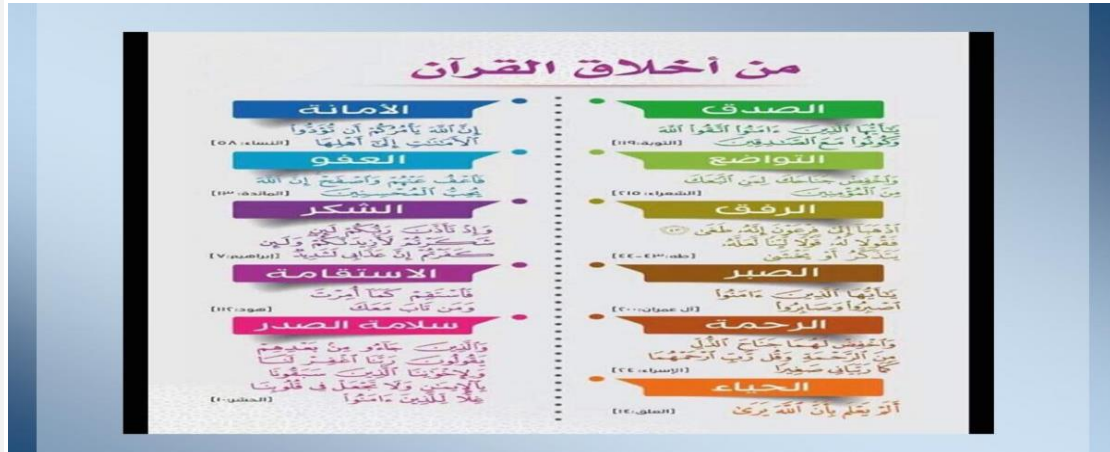 من أخلاق القرآن
الصدق
يَٰٓأَيُّهَا ٱلَّذِينَ ءَامَنُوا۟ ٱتَّقُوا۟ ٱللَّهَ
وَكُونُوا۟ مَعَ ٱلصَّٰدِقِينَ [التوبة:١١٩]
التواضع
وَٱخْفِضْ جَنَاحَكَ لِمَنِ ٱتَّبَعَكَ
مِنَ ٱلْمُؤْمِنِينَ [الشعراء:٢١٥]
الرفق
ٱذْهَبَآ إِلَىٰ فِرْعَوْنَ إِنَّهُۥ طَغَىٰ ٤٣
فَقُولَا لَهُۥ قَوْلًا لَّيِّنًا لَّعَلَّهُۥ
يَتَذَكَّرُ أَوْ يَخْشَىٰ [طه:٤٣-٤٤]
الصبر
يَٰٓأَيُّهَا ٱلَّذِينَ ءَامَنُوا۟
ٱصْبِرُوا۟ وَصَابِرُوا۟ [آل عمران:٢٠٠]
الرحمة
وَٱخْفِضْ لَهُمَا جَنَاحَ ٱلذُّلِّ
مِنَ ٱلرَّحْمَةِ وَقُل رَّبِّ ٱرْحَمْهُمَا
كَمَا رَبَّيَانِى صَغِيرًا [الإسراء:٢٤]
الحياء
أَلَمْ يَعْلَم بِأَنَّ ٱللَّهَ يَرَىٰ [العلق:١٤]
الأمانة
إِنَّ ٱللَّهَ يَأْمُرُكُمْ أَن تُؤَدُّوا۟
ٱلْأَمَٰنَٰتِ إِلَىٰٓ أَهْلِهَا [النساء:٥٨]
العفو
فَٱعْفُ عَنْهُمْ وَٱصْفَحْ إِنَّ ٱللَّهَ
يُحِبُّ ٱلْمُحْسِنِينَ [المائدة:١٣]
الشكر
وَإِذْ تَأَذَّنَ رَبُّكُمْ لَئِن
شَكَرْتُمْ لَأَزِيدَنَّكُمْ وَلَئِن
كَفَرْتُمْ إِنَّ عَذَابِى لَشَدِيدٌ [إبراهيم:٧]
الاستقامة
فَٱسْتَقِمْ كَمَآ أُمِرْتَ
وَمَن تَابَ مَعَكَ [هود:١١٢]
سلامة الصدر
وَٱلَّذِينَ جَآءُو مِنۢ بَعْدِهِمْ
يَقُولُونَ رَبَّنَا ٱغْفِرْ لَنَا
وَلِإِخْوَٰنِنَا ٱلَّذِينَ سَبَقُونَا
بِٱلْإِيمَٰنِ وَلَا تَجْعَلْ فِى قُلُوبِنَا
غِلًّا لِّلَّذِينَ ءَامَنُوا۟ [الحشر:١٠]